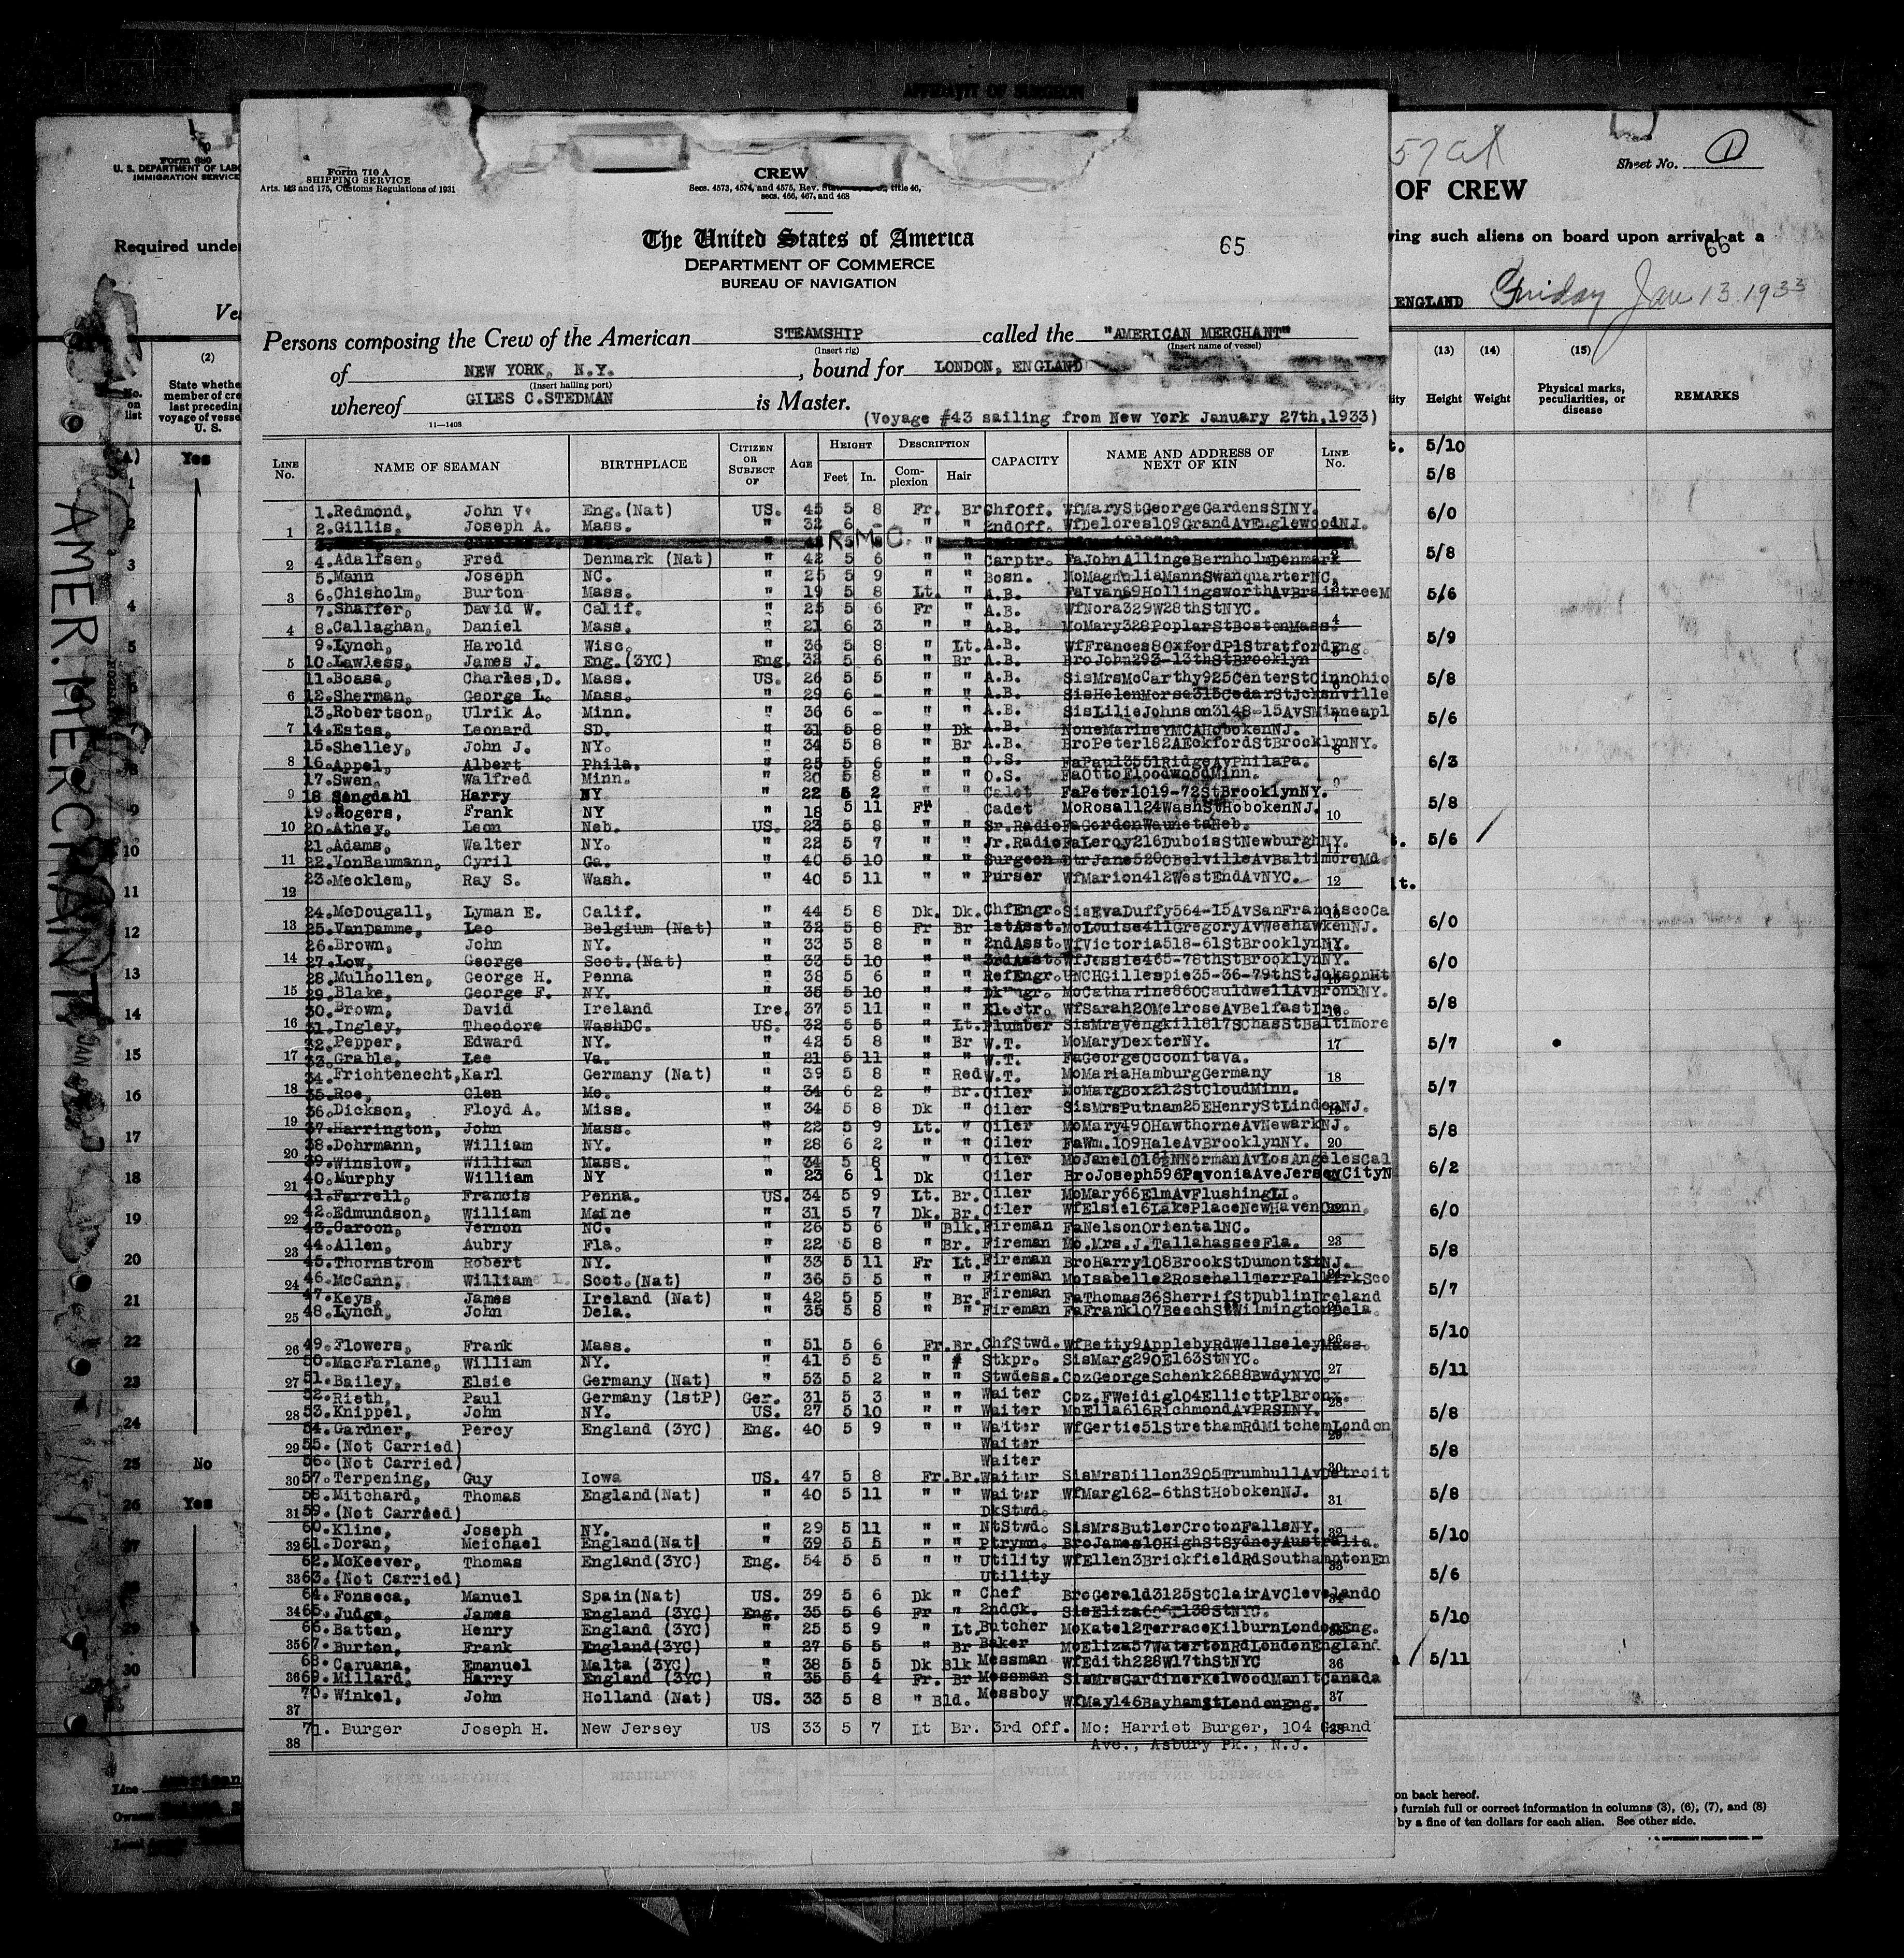 AFFIDAVIT OF SURGEON
Form 680
U. S. DEPARTMENT OF LABO
IMMIGRATION SERVICE
Required unde
Ve
(2)
No. on list
State whethe
member of cre
last precedin
voyage of vesse
U. S.
Yes
No
Yes
AMER. MERCHANT
Form 710 A
SHIPPING SERVICE
Arts. 163 and 175, Customs Regulations of 1931
CREW
Secs. 4573, 4574, and 4575, Rev. Stat. title 46,
secs. 466, 467, and 468
The United States of America
DEPARTMENT OF COMMERCE
BUREAU OF NAVIGATION
65
Persons composing the Crew of the American STEAMSHIP called the "AMERICAN MERCHANT"
(Insert rig) (Insert name of vessel)
of NEW YORK, N.Y., bound for LONDON, ENGLAND
(Insert hailing port)
whereof GILES C.STEDMAN is Master.
11—1408
(Voyage #43 sailing from New York January 27th,1933)
LINE No. NAME OF SEAMAN BIRTHPLACE CITIZEN OR SUBJECT OF AGE HEIGHT Feet In. DESCRIPTION Complexion Hair CAPACITY NAME AND ADDRESS OF NEXT OF KIN LINE No.
1.Redmond, John V. Eng.(Nat) US. 45 5 8 Fr. Br ChfOff. WfMaryStGeorgeGardensSINY.
2.Gillis, Joseph A. Mass. " 32 6 - " " 2ndOff. WfDelores109GrandAvEnglewoodNJ.
R.M.C.
4.Adalfsen, Fred Denmark (Nat) " 42 5 6 " " Carptr. FaJohnAllingeBernholmDenmark
5.Mann Joseph NC. " 25 5 9 " " Bosn. MoMagnuliaMannSwanquarterNC.
6.Chisholm, Burton Mass. " 19 5 8 Lt. " A.B. FaIvan69HollingsworthAvBraintreeM
7.Shaffer, David W. Calif. " 25 5 6 Fr " A.B. WfNora329W28thStNYC.
8.Callaghan, Daniel Mass. " 21 6 3 " " A.B. MoMary328PoplarStBostonMass.
9.Lynch, Harold Wisc. " 36 5 8 " Lt. A.B. WfFrances80xfordPlStratfordEng.
10.Lawless, James J. Eng.(3YC) Eng. 32 5 6 " Br A.B. BroJohn293-13thStBrooklyn
11.Boasa, Charles,D. Mass. US. 26 5 5 " " A.B. SisMrsMcCarthy925CenterStCinnOhio
12.Sherman, George L. Mass. " 29 6 - " " A.B. SisHelenMorse315CedarStJcksnville
13.Robertson, Ulrik A. Minn. " 36 6 - " " A.B. SisLilieJohnson3148-15AvSMinneapl
14.Estes, Leonard SD. " 31 5 8 " Dk A.B. NoneMarineYMCAHobokenNJ.
15.Shelley, John J. NY. " 34 5 8 " Br A.B. BroPeter182AEckfordStBrocklynNY.
16.Appel, Albert Phila. " 25 5 6 " " O.S. FaPaul3551RidgeAvPhilaPa.
17.Swen, Walfred Minn. " 20 5 8 " " O.S. FaOttoFloodwoodMinn.
18 Sengdahl Harry NY " 22 5 2 " " Cadet FaPeter1019-72StBrooklynNY.
19.Rogers, Frank NY 18 5 11 Fr " Cadet MoRosa1124WashStHobokenNJ.
20.Athey, Leon Neb. US. 23 5 8 " " Sr.Radio FaGordonWaunetaNeb.
21.Adams, Walter NY. " 22 5 7 " " Jr.Radio FaLeroy216DuboisStNewburghNY.
22.VonBaumann, Cyril Ga. " 40 5 10 " " Surgeon DtrJane5200BelvilleAvBaltimoreMd
23.Mecklem, Ray S. Wash. " 40 5 11 " " Purser WfMarion412WestEndAvNYC.
24.McDougall, Lyman E. Calif. " 44 5 8 Dk. Dk. ChfEngr. SisEvaDuffy564-15AvSanFranciscoCa
25.VanDamme, Leo Belgium (Nat) " 32 5 8 Fr Br 1stAsst. MoLouise411GregoryAvWeehawkenNJ.
26.Brown, John NY. " 33 5 8 " " 2ndAsst. WfVictoria518-61StBrooklynNY.
27.Low, George Scot.(Nat) " 32 5 10 " " 3rdAsst. WfJessie465-78thStBrooklynNY.
28.Mulhollen, George H. Penna " 38 5 6 " " RefEngr. UNCHGillespie35-36-79thStJcksonHt
29.Blake, George F. NY. " 35 5 10 " " MoCatharine860CauldwellAvBronxNY.
30.Brown, David Ireland Ire. 37 5 11 " " Electr. WfSarah20MelroseAvBelfastIre.
31.Ingley, Theodore WashDC. US. 32 5 5 " Lt. Plumber SisMrsVengkill817SChasStBaltimore
32.Pepper, Edward NY. " 42 5 8 " Br W.T. MoMaryDexterNY.
33.Grable, Lee Va. " 21 5 11 " " W.T. FaGeorgeOcoonitaVa.
34.Frichtenecht, Karl Germany (Nat) " 39 5 8 " Red W.T. MoMariaHamburgGermany
35.Roe, Glen Mo. " 34 6 2 " Br. Oiler MoMargBox212StCloudMinn.
36.Dickson, Floyd A. Miss. " 34 5 8 Dk " Oiler SisMrsPutnam25EHenryStLindenNJ.
37.Harrington, John Mass. " 22 5 9 Lt. " Oiler MoMary490HawthorneAvNewarkNJ.
38.Dohrmann, William NY. " 28 6 2 " " Oiler FaWm.109HaleAvBrooklynNY.
39.Winslow, William Mass. " 34 5 8 " " Oiler MoJane1016½NNormanAvLosAngelesCal
40.Murphy William NY " 23 6 1 Dk Oiler BroJoseph596PavoniaAveJerseyCityN
41.Farrell, Francis Penna. US. 34 5 9 Lt. Br. Oiler MoMary66ElmAvFlushingLI.
42.Edmundson, William Maine " 31 5 7 Dk. Br. Oiler WfElsie16LakePlaceNewHavenConn.
43.Caroon, Vernon NC. " 26 5 6 " Blk. Fireman FaNelsonOrientalNC.
44.Allen, Aubry Fla. " 22 5 8 " Br. Fireman Mo.Mrs.J.TallahasseeFla.
45.Thornstrom Robert NY. " 33 5 11 Fr Lt. Fireman BroHarry108BrookStDumontNJ.
46.McCann, William Scot.(Nat) " 36 5 5 " " Fireman MoIsabelle2RosehallTerrFalkirkSco
47.Keys, James Ireland (Nat) " 42 5 5 " Br. Fireman FaThomas36SherrifStDublinIreland
48.Lynch, John Dela. " 35 5 8 " " Fireman FaFrank107BeechStWilmingtonDela.
49.Flowers, Frank Mass. " 51 5 6 Fr. Br. ChfStwd. WfBetty9ApplebyRdWellseleyMass.
50.MacFarlane, William NY. " 41 5 5 " # Stkpr. SisMarg290E163StNYC.
51.Bailey, Elsie Germany (Nat) " 53 5 2 " " Stwdess. CozGeorgeSchenk2688BwdyNYC.
52.Rieth, Paul Germany (1stP) Ger. 31 5 3 " " Waiter Coz.FWeidig104ElliottPlBronx.
53.Knippel, John NY. US. 27 5 10 " " Waiter MoElla616RichmondAvPRSINY.
54.Gardner, Percy England (3YC) Eng. 40 5 9 " " Waiter WfGertie51StrethamRdMitchemLondon
55.(Not Carried) Waiter
56.(Not Carried) Waiter
57.Terpening, Guy Iowa US. 47 5 8 Fr. Br. Waiter SisMrsDillon3905TrumbullAvDetroit
58.Mitchard, Thomas England(Nat) " 40 5 11 " " Waiter WfMarg162-6thStHobokenNJ.
59.(Not Carried) DkStwd.
60.Kline, Joseph NY. " 29 5 11 " " NtStwd. SisMrsButlerCrotonFallsNY.
61.Doran, Meichael England(Nat) " 39 5 5 " " Ptrymn. BroJames10HighStSydneyAustralia.
62.McKeever, Thomas England(3YC) Eng. 54 5 5 " " Utility WfEllen3BrickfieldRdSouthamptonEn
63.(Not Carried) Utility
64.Fonseca, Manuel Spain(Nat) US. 39 5 6 Dk " Chef BroGerald3125StClairAvClevelandO
65.Judge, James England (3YC) Eng. 35 5 6 Fr " 2ndCk.
66.Batten, Henry England (3YC) " 25 5 9 " Lt. Butcher MoKate12TerraceKilburnLondonEng.
67.Burton, Frank England(3YC) " 27 5 5 " Br Baker MoEliza57WatertonRdLondonEngland
68.Caruana, Emanuel Malta (3YC) " 38 5 5 Dk Blk Messman WfEdith228W17thStNYC
69.Millard, Harry England (3YC) " 35 5 4 Fr. Br Messman SisMrsGardinerKelwoodManitCanada
70.Winkel, John Holland (Nat) US. 33 5 8 " Bld. Messboy WfMay146BayhamStLondonEng.
71. Burger Joseph H. New Jersey US 33 5 7 Lt Br. 3rd Off. Mo: Harriet Burger, 104 Grand
Ave., Asbury Pk., N.J.
Sheet No. 1
OF CREW
ving such aliens on board upon arrival at a
66
ENGLAND Friday Jan 13 1933
(13) (14) (15)
Height Weight Physical marks, peculiarities, or disease REMARKS
5/10
5/8
6/0
5/8
5/6
5/9
5/8
5/6
6/3
5/8
5/6
6/0
6/0
5/8
5/7
5/7
5/8
6/2
6/0
5/8
5/7
5/10
5/11
5/8
5/8
5/8
5/10
5/6
5/10
5/11
Line American
Owners
on back hereof.
furnish full or correct information in columns (3), (6), (7), and (8)
by a fine of ten dollars for each alien. See other side.